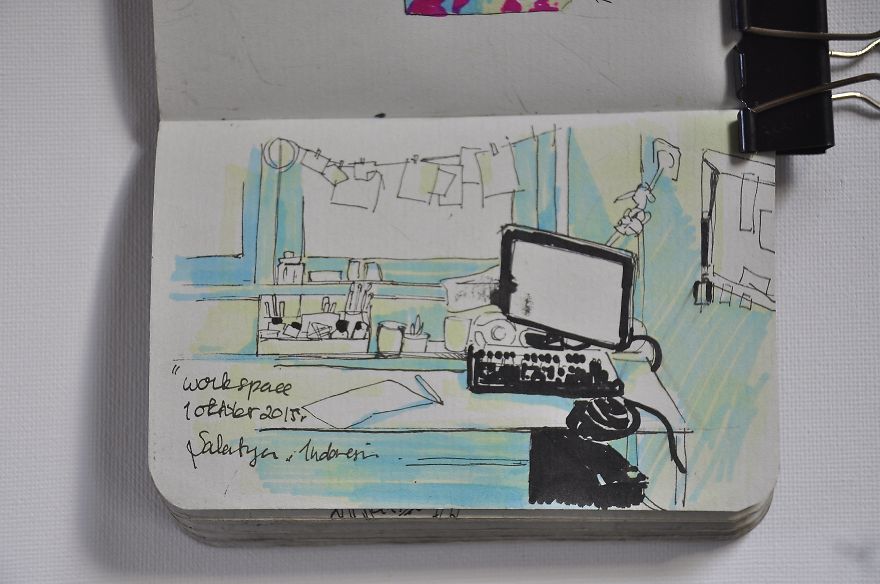 "workspace
1 oktober 2015,
Salatiga, Indonesia